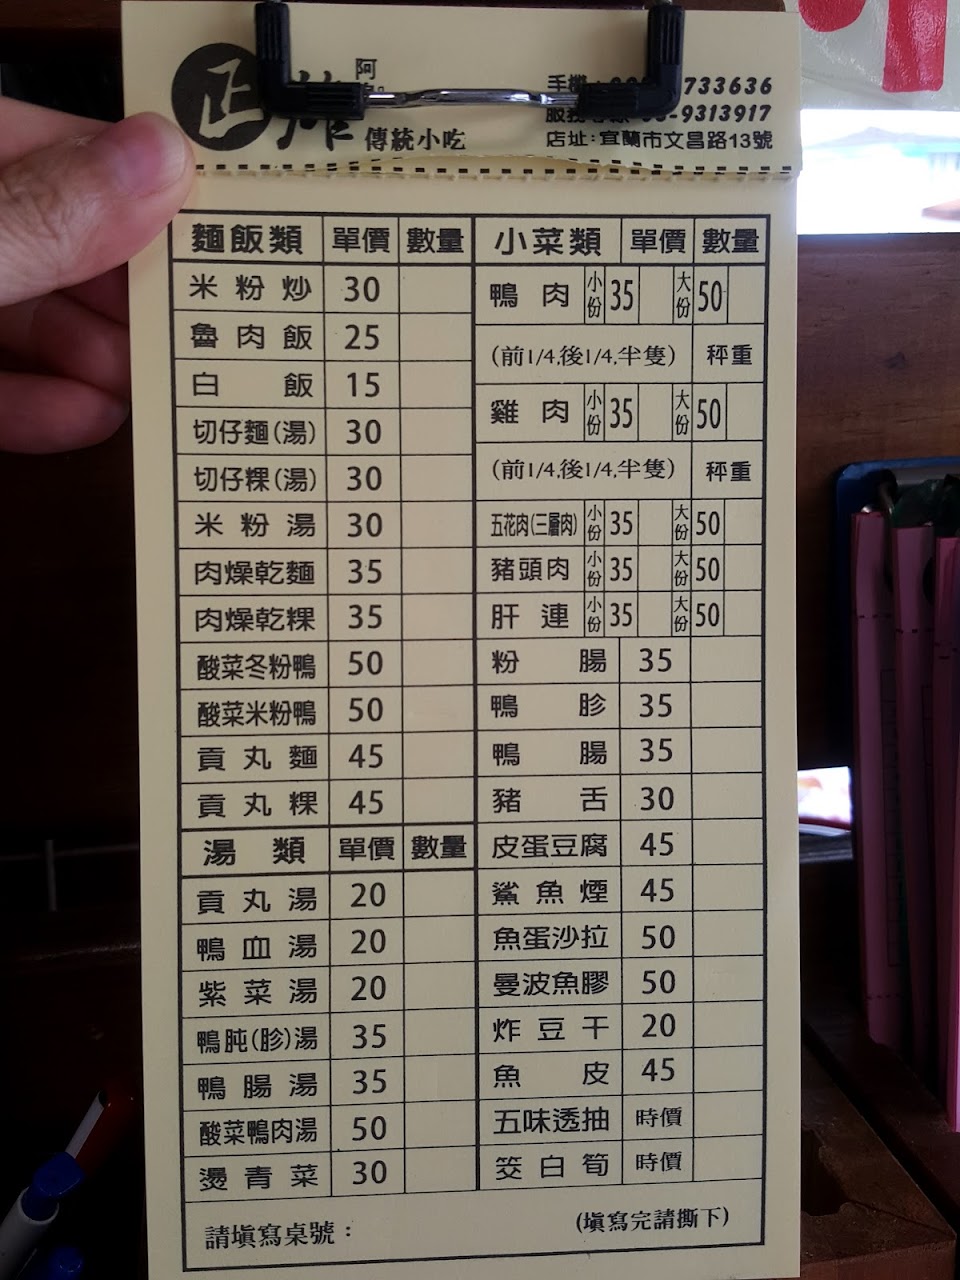 正
阿
傳統小吃
733636
9313917
店址:宜蘭市文昌路13號
麵飯類 單價 數量
米粉炒 30
魯肉飯 25
白飯 15
切仔麵(湯) 30
切仔粿(湯) 30
米粉湯 30
肉燥乾麵 35
肉燥乾粿 35
酸菜冬粉鴨 50
酸菜米粉鴨 50
貢丸麵 45
貢丸粿 45
湯類 單價 數量
貢丸湯 20
鴨血湯 20
紫菜湯 20
鴨肫(胗)湯 35
鴨腸湯 35
酸菜鴨肉湯 50
燙青菜 30
小菜類 單價 數量
鴨肉 小份 35 大份 50
(前1/4,後1/4,半隻) 秤重
雞肉 小份 35 大份 50
(前1/4,後1/4,半隻) 秤重
五花肉(三層肉) 小份 35 大份 50
豬頭肉 小份 35 大份 50
肝連 小份 35 大份 50
粉腸 35
鴨胗 35
鴨腸 35
豬舌 30
皮蛋豆腐 45
鯊魚煙 45
魚蛋沙拉 50
曼波魚膠 50
炸豆干 20
魚皮 45
五味透抽 時價
筊白筍 時價
請填寫桌號:
(填寫完請撕下)